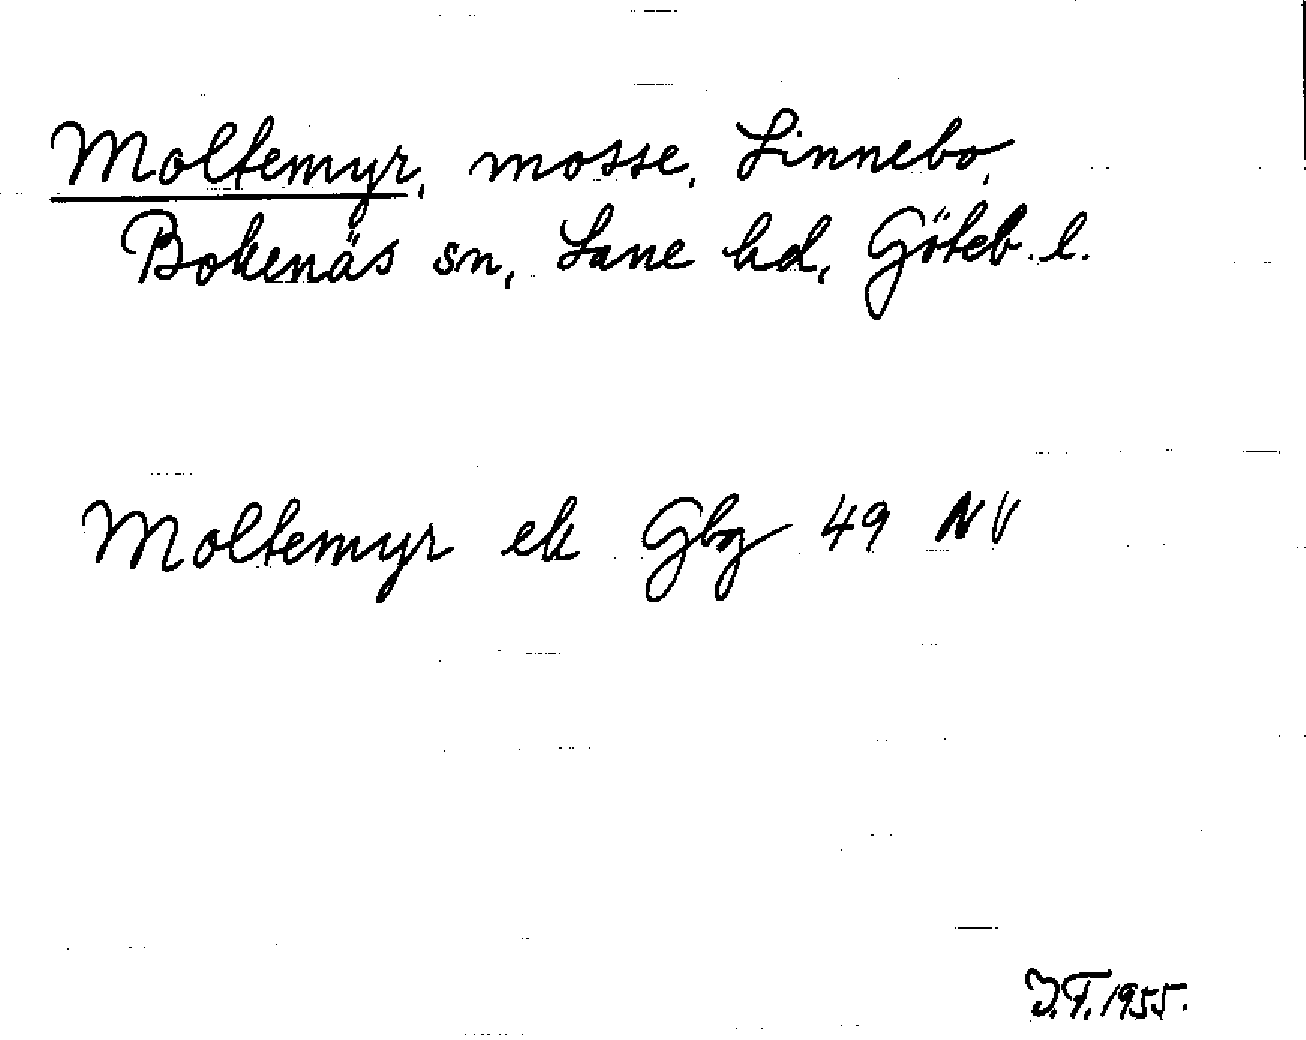 Moltemyr, mosse, Linnebo,
Bokenäs sn, Lane hd, Göteb. l.
Moltemyr ek Gbg 49 NV
J.F. 1955.